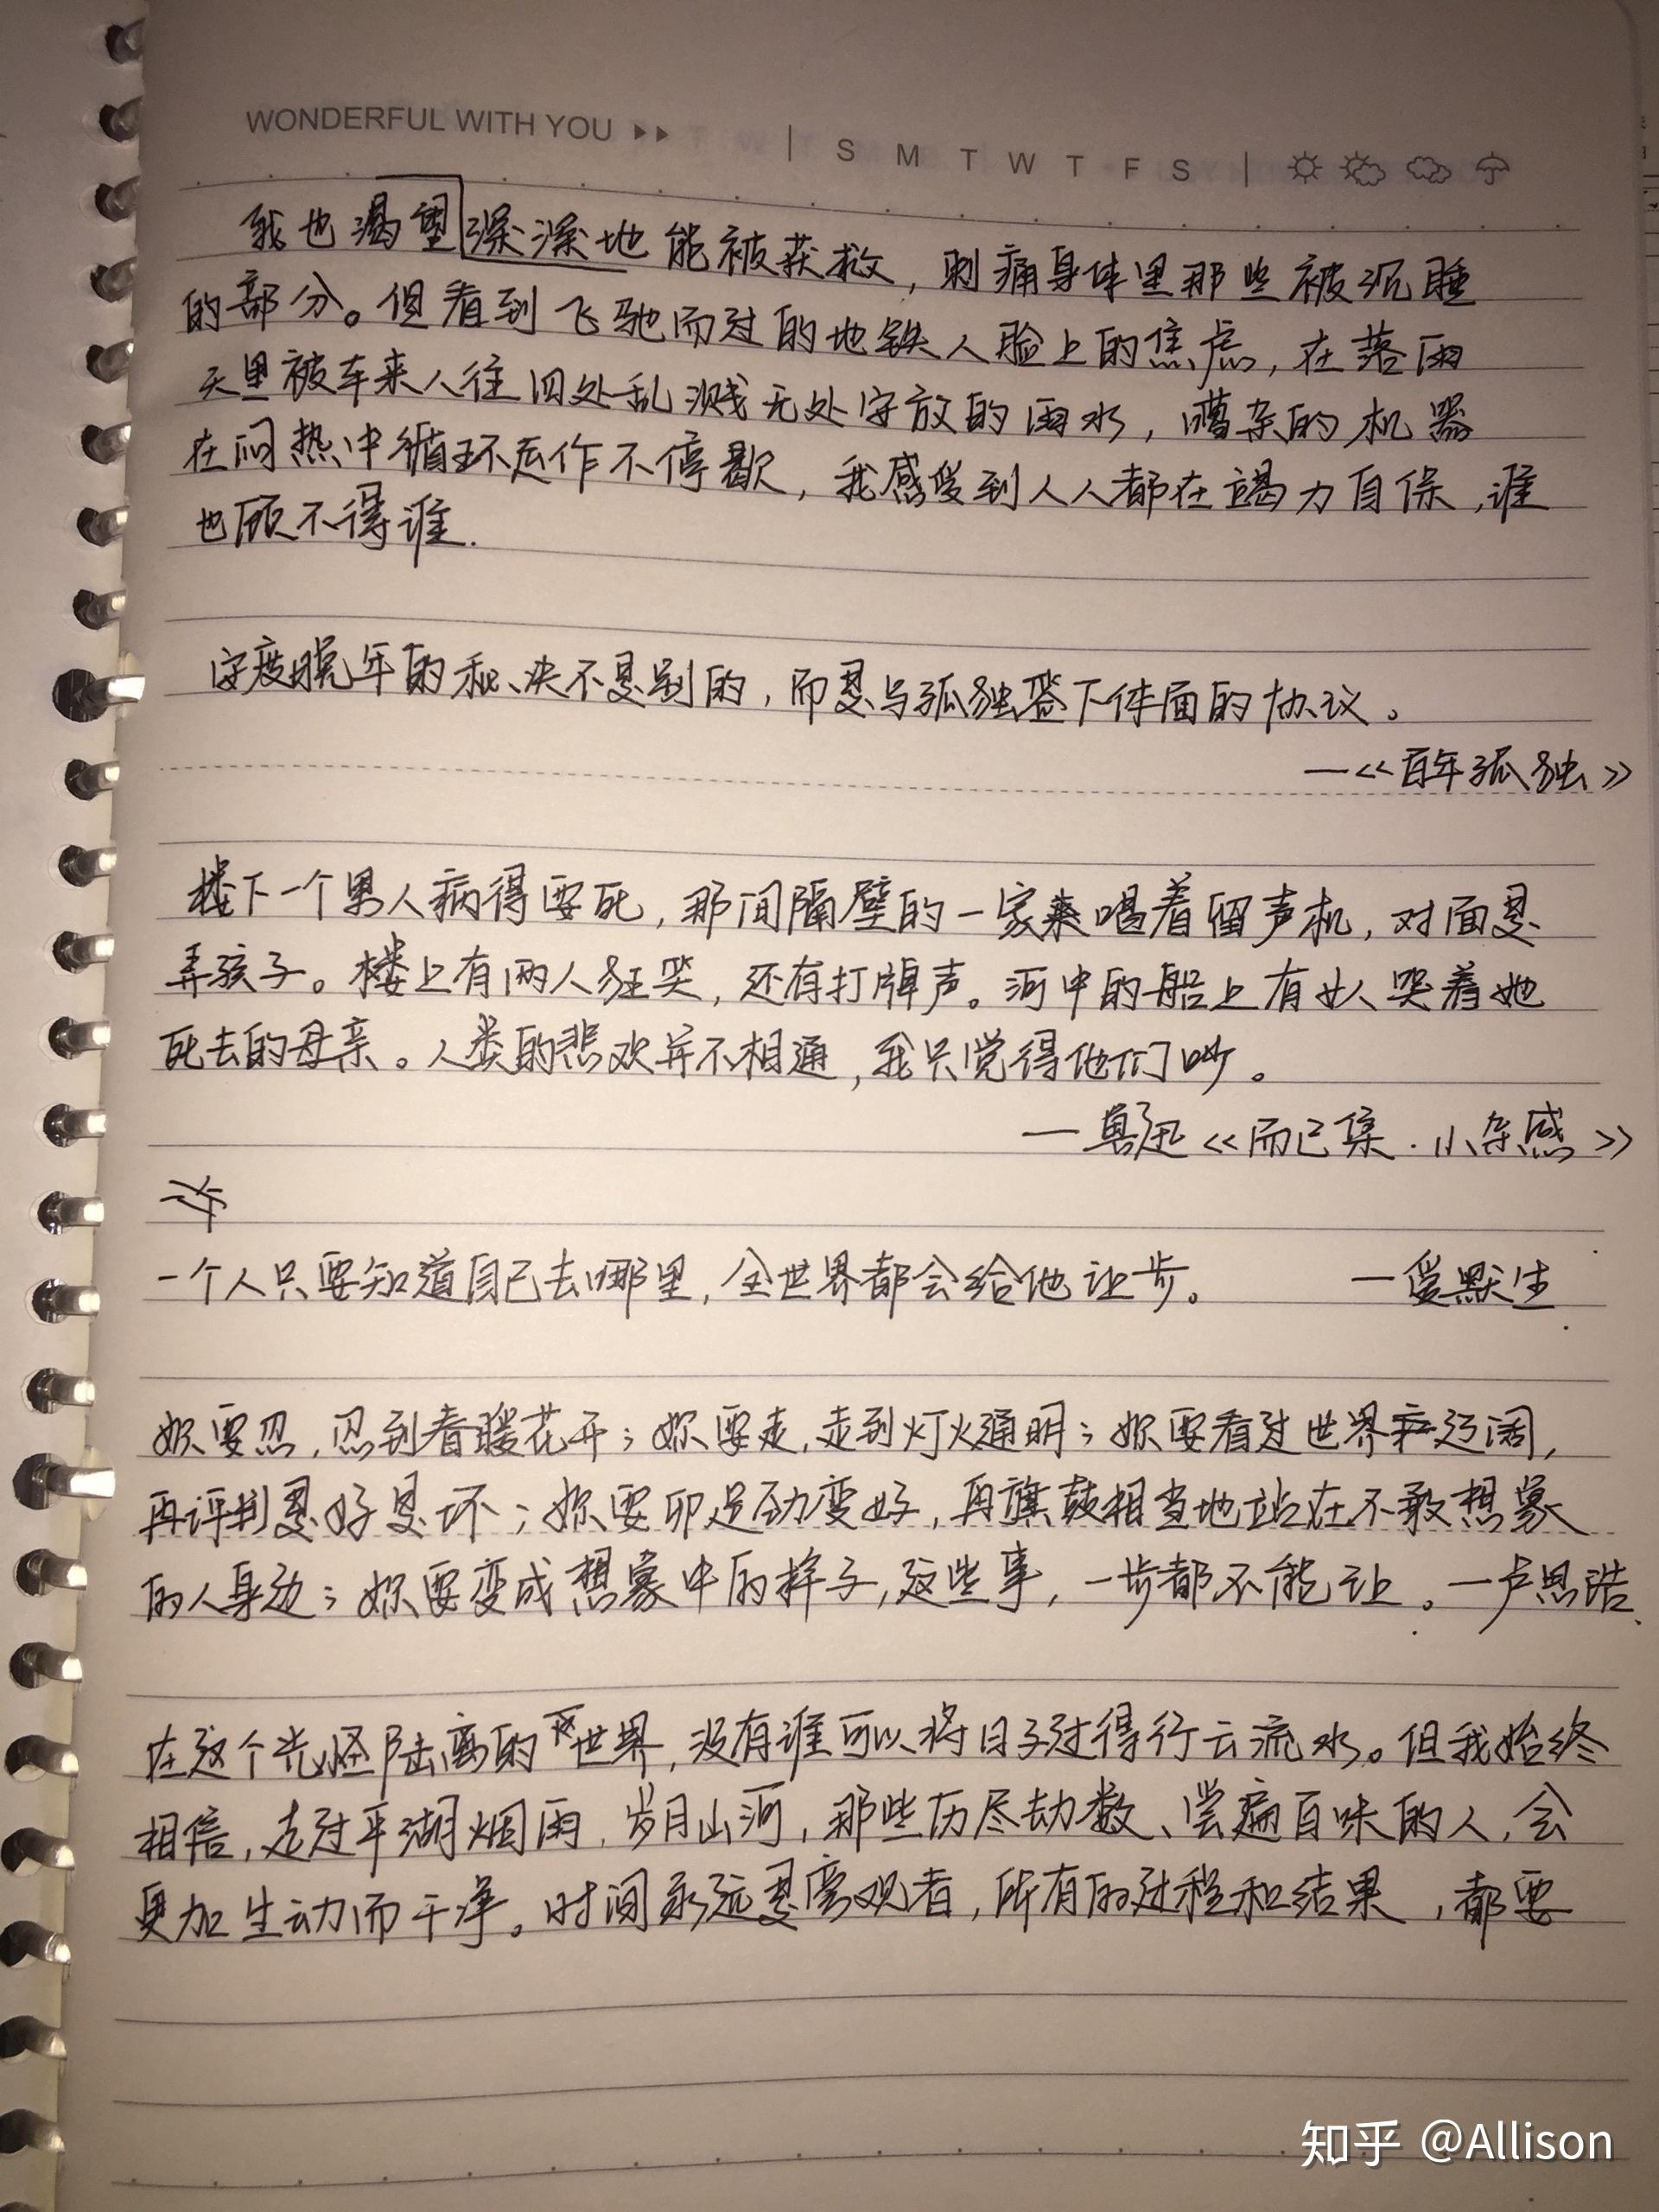 WONDERFUL WITH YOU ▸▸ | S M T W T F S |
我也渴望深深地能被获救，刺痛身体里那些被沉睡
的部分。但看到飞驰而过的地铁人脸上的焦虑，在落雨
天里被车来人往四处乱溅无处安放的雨水，嘈杂的机器
在闷热中循环运作不停歇，我感受到人人都在竭力自保，谁
也顾不得谁.
安度晚年的秘诀不是别的，而是与孤独签下体面的协议。
—《百年孤独》
楼下一个男人病得要死，那间隔壁的一家唱着留声机，对面是
弄孩子。楼上有两人狂笑，还有打牌声。河中的船上有女人哭着她
死去的母亲。人类的悲欢并不相通，我只觉得他们吵。
—鲁迅《而已集·小杂感》
一个人只要知道自己去哪里，全世界都会给他让步。 —爱默生
你要忍，忍到春暖花开；你要走，走到灯火通明；你要看过世界辽阔，
再评判是好是坏；你要卯足劲变好，再旗鼓相当地站在不敢想象
的人身边；你要变成想象中的样子，这些事，一步都不能让。—卢思浩
在这个光怪陆离的世界，没有谁可以将日子过得行云流水。但我始终
相信，走过平湖烟雨，岁月山河，那些历尽劫数、尝遍百味的人，会
更加生动而干净。时间永远是旁观者，所有的过程和结果，都要
知乎 @Allison